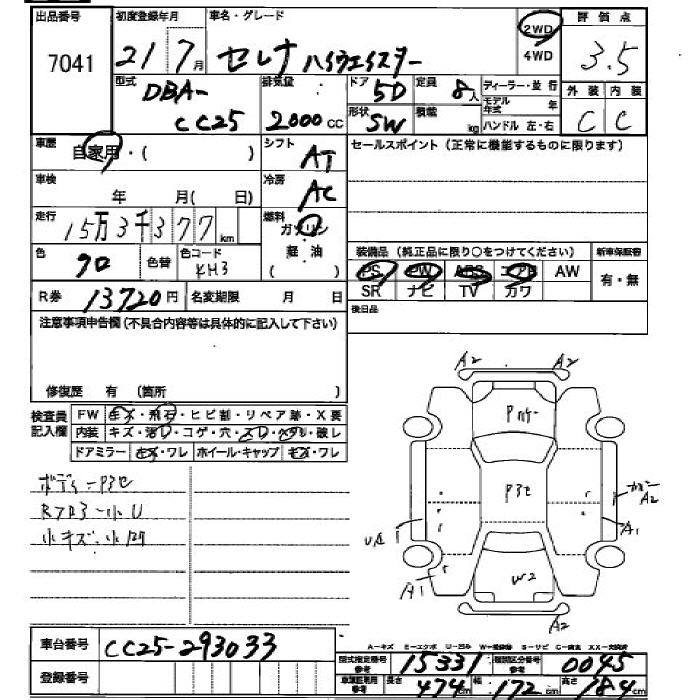 出品番号 初度登録年月 車名・グレード 2WD 評価点
7041 21 7月 セレナ ハイウェイスター 4WD 3.5
型式 排気量 ドア 定員 ディーラー・並行 外装 内装
DBA-CC25 2000cc 5D 8人 モデル年式 年 C C
形状 SW 積載 kg ハンドル 左・右
車歴 自家用・( ) シフト AT セールスポイント(正常に機能するものに限ります)
車検 年 月( 日) 冷房 AC
走行 15万3千377km 燃料 ガソリン
軽油
( )
色 色替 色コード KH3 装備品(純正品に限り○をつけてください) 新車保証書
PS PW ABS エアB AW 有・無
SR ナビ TV カワ
R券 13720円 名変期限 月 日
後日品
注意事項申告欄(不具合内容等は具体的に記入して下さい)
修復歴 有 (箇所 )
検査員記入欄 FW キズ・飛石・ヒビ割・リペア跡・X要
内装 キズ・汚レ・コゲ・穴・スレ・ヘタレ・破レ
ドアミラー キズ・ワレ ホイール・キャップ キズ・ワレ
ボディーP3セ
小キズ・小
A2 A2
P3セ
A2
A1
A1
W2
A2
車台番号 CC25-293033
登録番号
A-キズ E-エクボ U-凹み W-補修跡 S-サビ C-腐食 XX-交換済
型式指定番号参考 15331 類別区分番号参考 0045
車庫証明用参考 長さ 474cm 幅 172cm 高さ 184cm